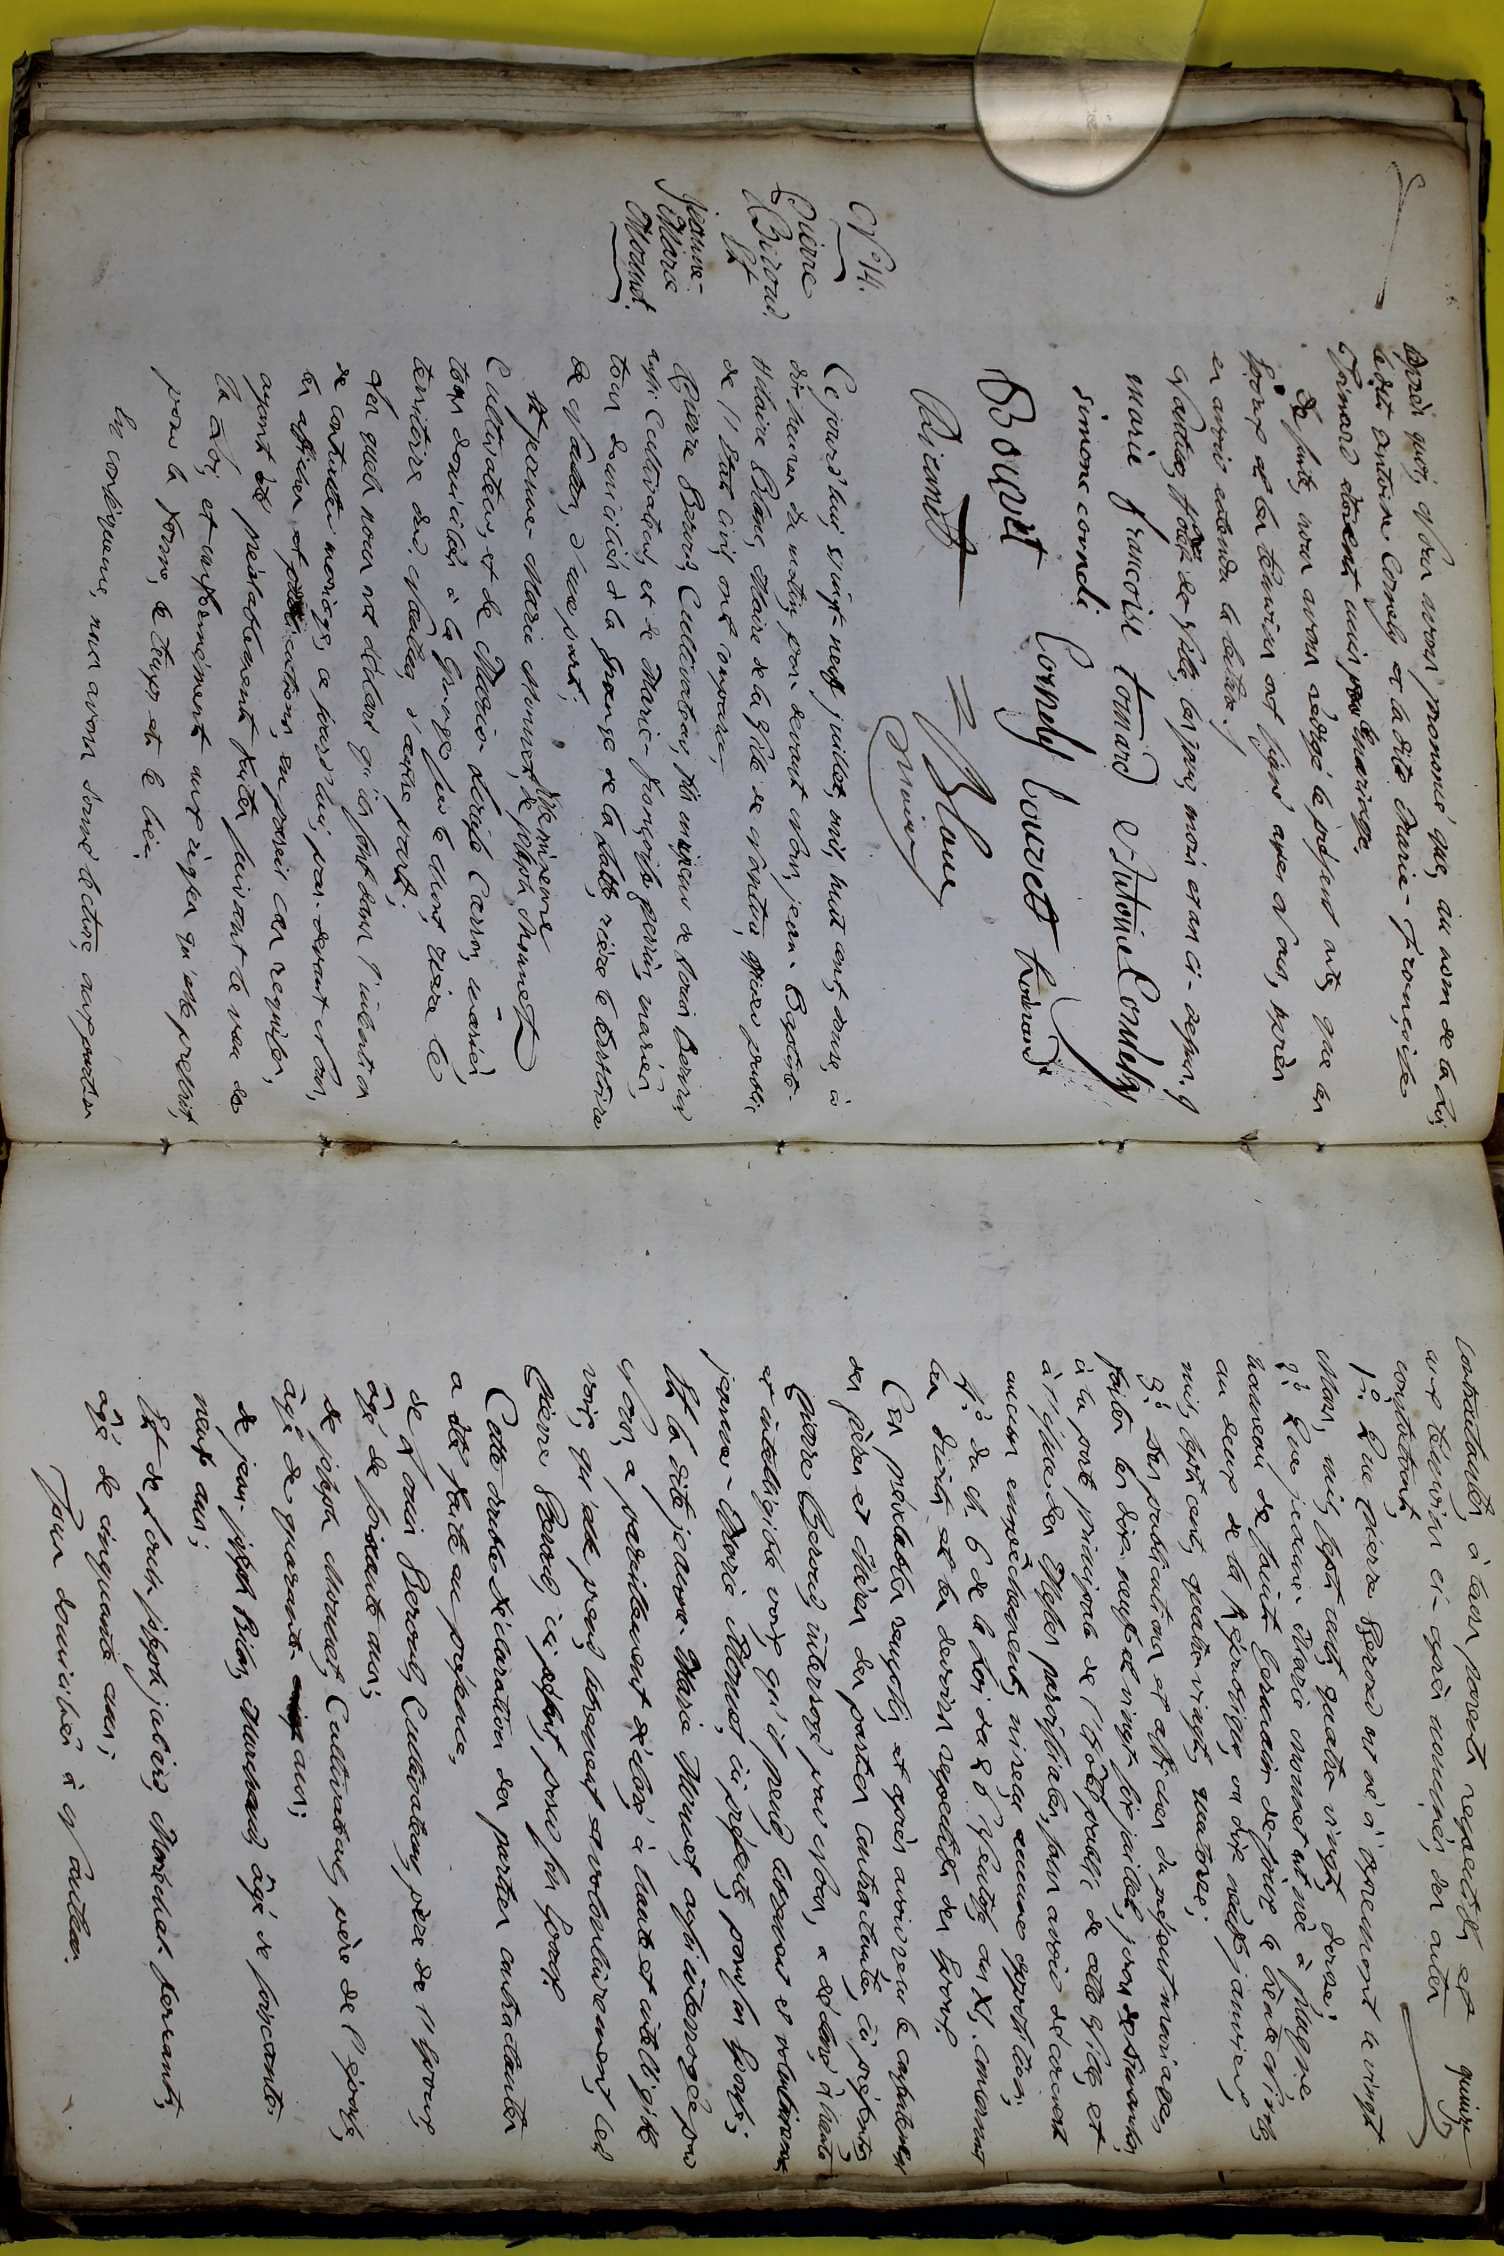 Après quoi, Nous avons prononcé que, au nom de la Loi,
ledit antoine Cornely et la dite Marie-Françoise
Tomard étoient unis en mariage.
De suite, nous avons rédigé le présent acte, que les
époux et les témoins ont signé avec Nous, après
en avoir entendu la lecture,
Nantua, hôtel de Ville, les jour, mois et an ci-dessus.
marie francoise tomard Antoine Cornely
simone cornely
Bouvet Cornely Bouvett
= Blanc
maire
N.° 14.
Pierre
Beroud.
Et
Jeanne-
Marie
Monnet.
Ce jourd'hui vingt-neuf juillet, mil huit cent douze, à
dix heures du matin, par-devant Nous, jean-Baptiste-
Hilaire Blanc, Maire de la Ville de Nantua, officier public
de l'Etat civil, ont comparu,
Pierre Beroud, Cultivateur, fils majeur de Louis Beroud
aussi Cultivateur, et de Marie-françoise perrin, mariés,
tous domiciliés à la Grange de la Latte, rière le territoire
de Nantua, d'une part;
Et jeanne-Marie Monnet, fille mineure de joseph Monnet
Cultivateur, et de Marie-Louise Carron, mariés,
tous domiciliés à la Grange sur le Mont, rière le
territoire dud. Nantua, d'autre part;
Les quels nous ont déclaré qu'ils sont dans l'intention
de contracter mariage, ce jourd'hui, par-devant Nous,
les affiches et publications, en pareil cas requises,
ayant été préalablement faites suivant le vœu de
la Loi, et conformément aux règles qu'elle prescrit,
pour la forme, le temps et le lieu.
En conséquence, nous avons donné lecture, aux parties
quinze
contractantes, à leurs parents respectifs et
aux témoins ci-après nommés, des actes
constatant,
1.° Que pierre Beroud est né à apremont le vingt
Mars, mil sept cent quatre vingt douze;
2.° Que jeanne-Marie monnet est née à plagne
hameau de saint Germain-de-joux le trente Nivôse,
an deux de la République, ou dix neuf janvier,
mil sept cent quatre-vingt quatorze;
3.° Des publications et affiches du présent mariage,
faites les dix-neuf et vingt six juillet, jours de Dimanches,
à la porte principale de l'hôtel public de cette Ville, et
à l'issue des Messes paroissiales, sans avoir découvert
aucun empêchement, ni reçu aucune opposition;
4.° Du ch. 6 de la Loi du 26 Ventôse an XI, concernant
les droits et les devoirs respectifs des époux.
Ces préalables remplis, et après avoir reçu le consentement
des pères et mères des parties contractantes, ici présents,
Pierre Beroud, interrogé par Nous, a déclaré, à haute
et intelligible voix, qu'il prend librement et volontairement
jeanne-Marie Monnet, ici présente, pour son Epouse;
Et la dite jeanne-Marie Monnet, aussi interrogée par
Nous, a pareillement déclaré, à haute et intelligible
voix, qu'elle prend, librement et volontairement, led.
pierre Beroud, ici présent, pour son Epoux.
Cette double déclaration des parties contractantes
a été faite en présence,
de Louis Beroud, Cultivateur, père de l'époux,
âgé de soixante ans;
de joseph Monnet, Cultivateur, père de l'Epouse,
âgé de quarante ans;
de jean joseph Billon, Marchand, âgé de soixante-
neuf ans;
Et de Louis joseph , Maréchal-ferrant,
âgé de cinquante ans;
Tous domiciliés à Nantua.